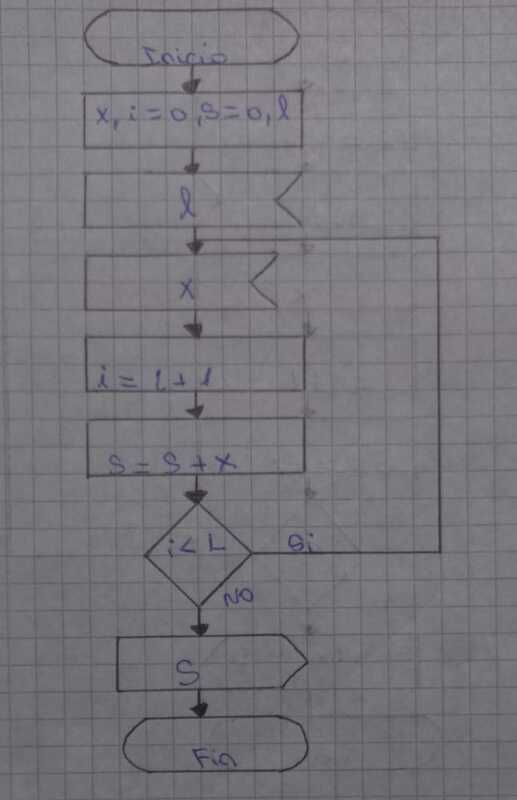 Inicio
x, i=0, s=0, l
l
x
i = i + 1
S = S + X
i < L
Si
NO
S
Fin